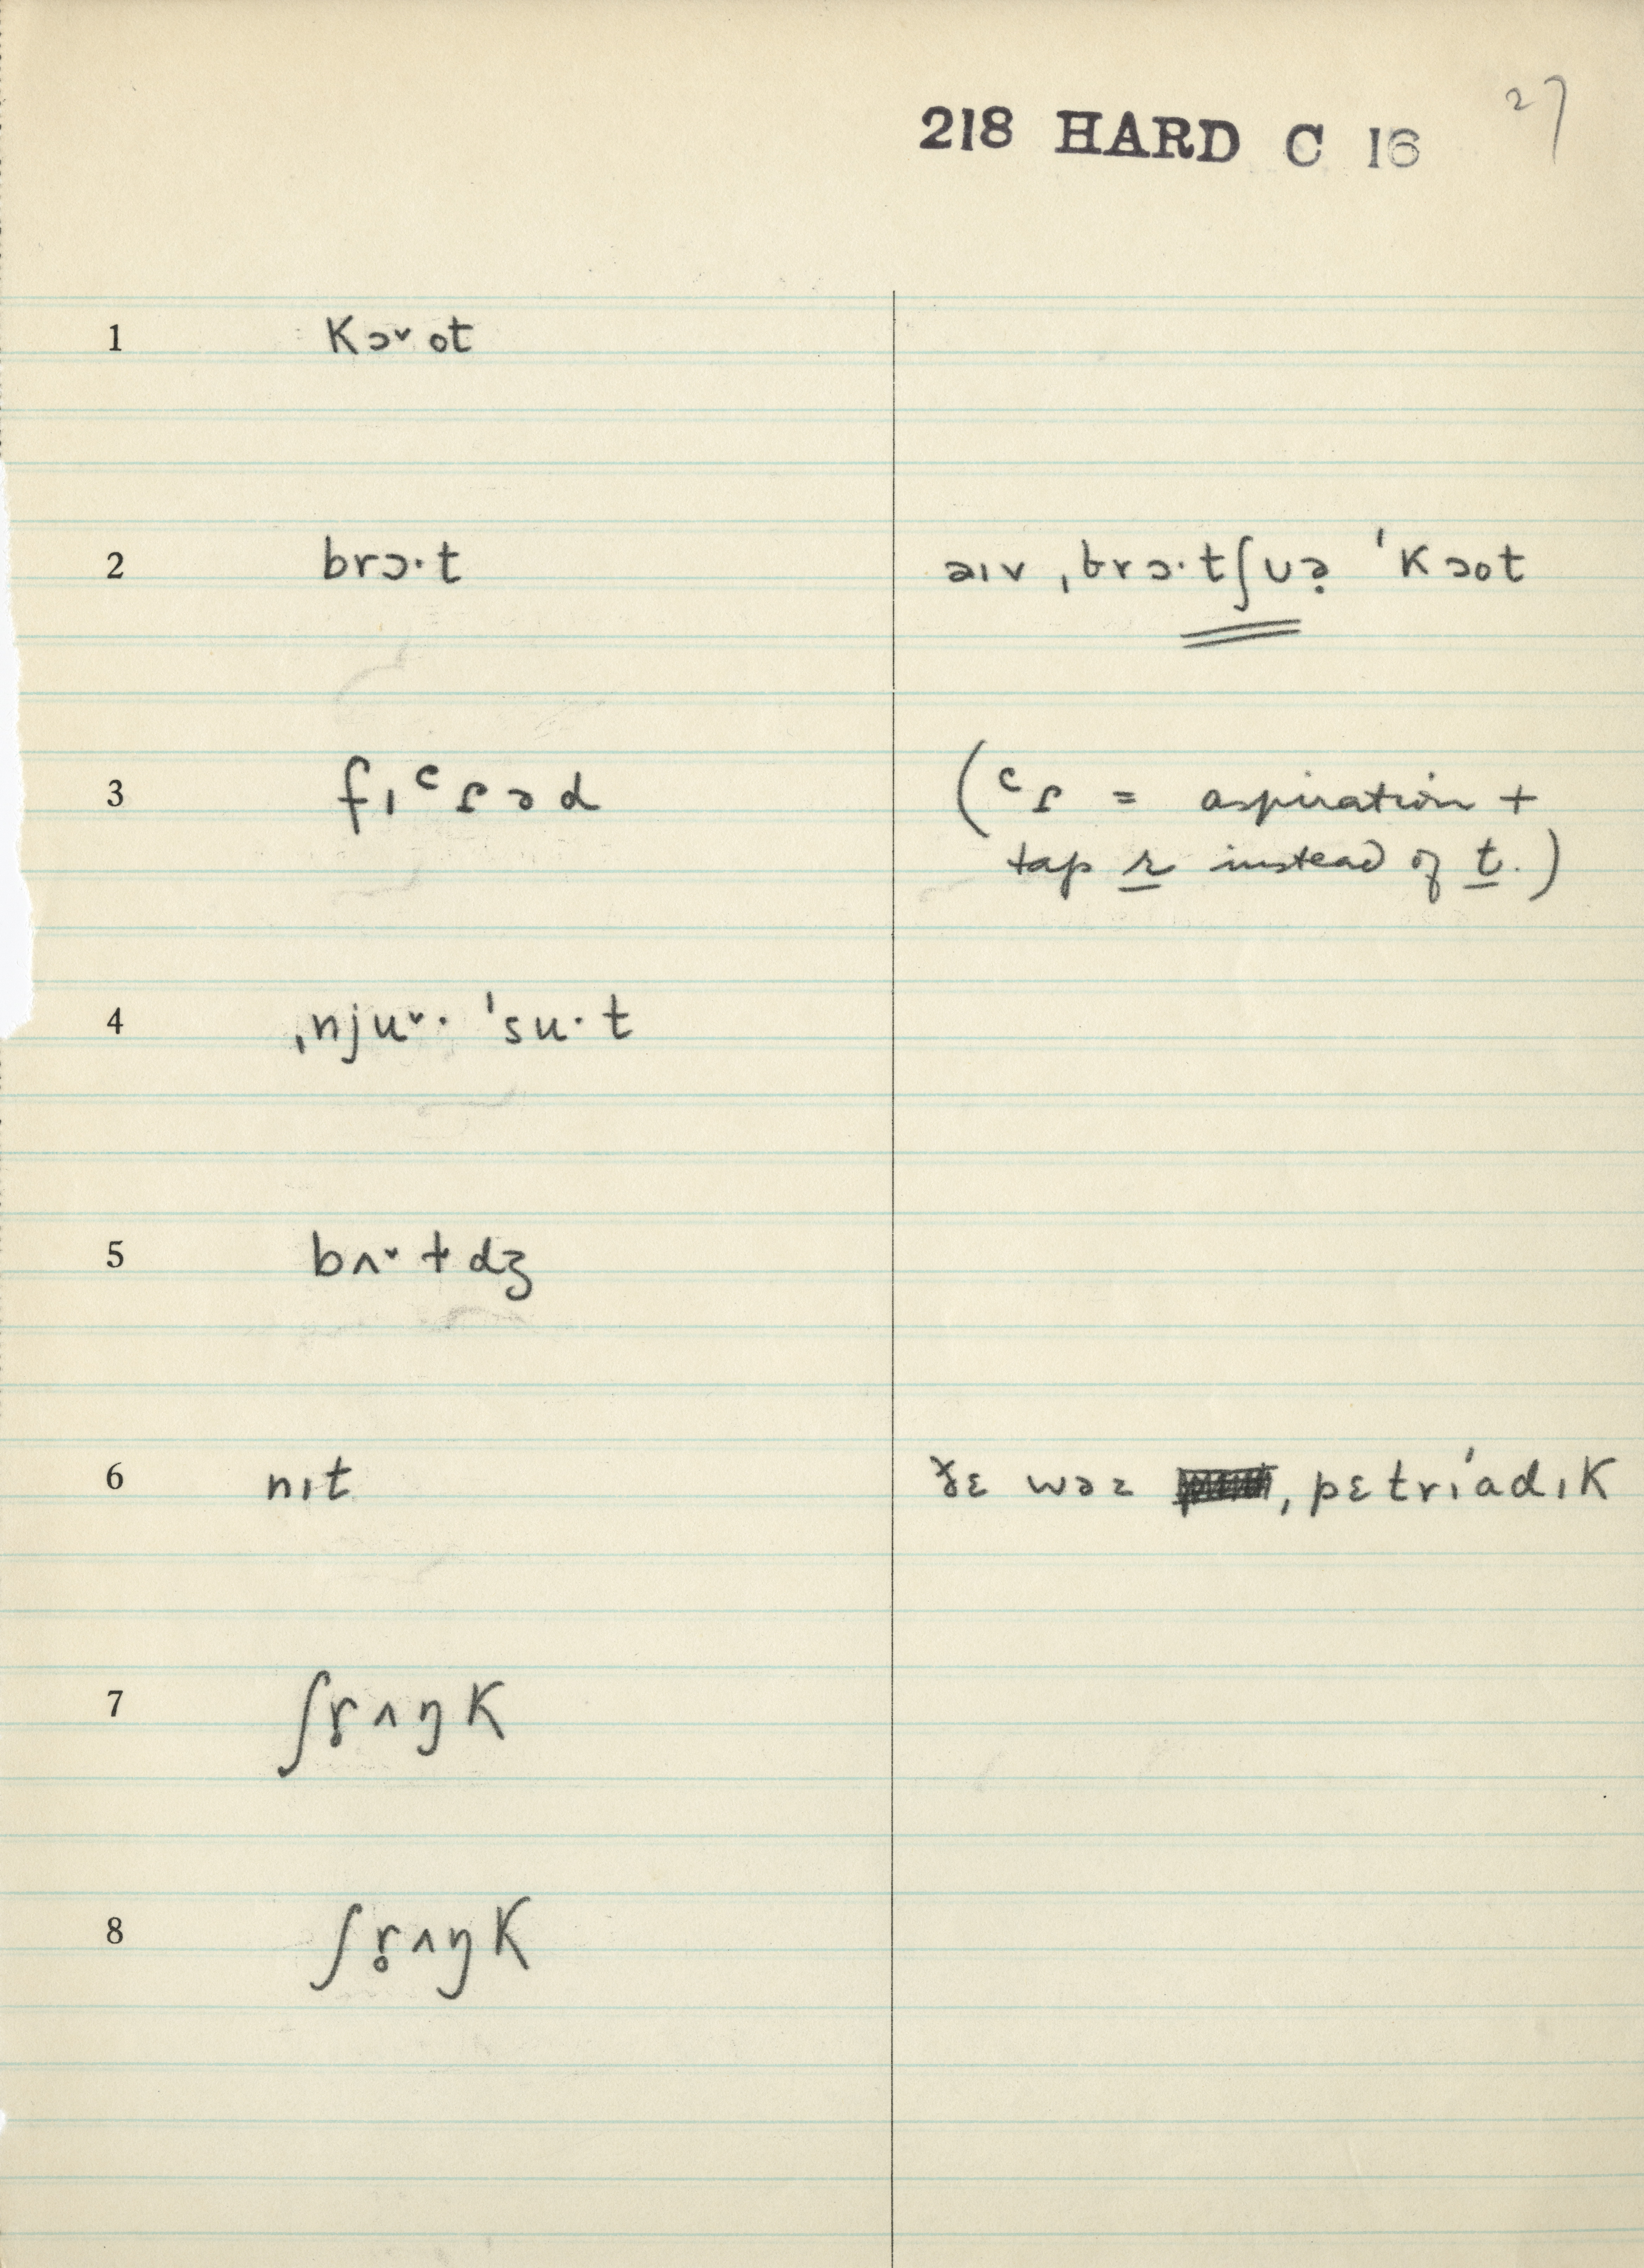 218 HARD C 16 27
1 kɔ˅ot
2 brɔ·t əɪv ˌbrɔ·tʃʊə̣ ˈkɔot
3 fɪᶜɾəd (ᶜɾ = aspiration +
tap r instead of t.)
4 ˌnju˅· ˈsu·t
5 bʌ˅tdʒ
6 nɪt ðɛ wəz ˌpɛtrɪ́adɪk
7 ʃɾ̥ʌŋk
8 ʃɾ̥ʌŋk